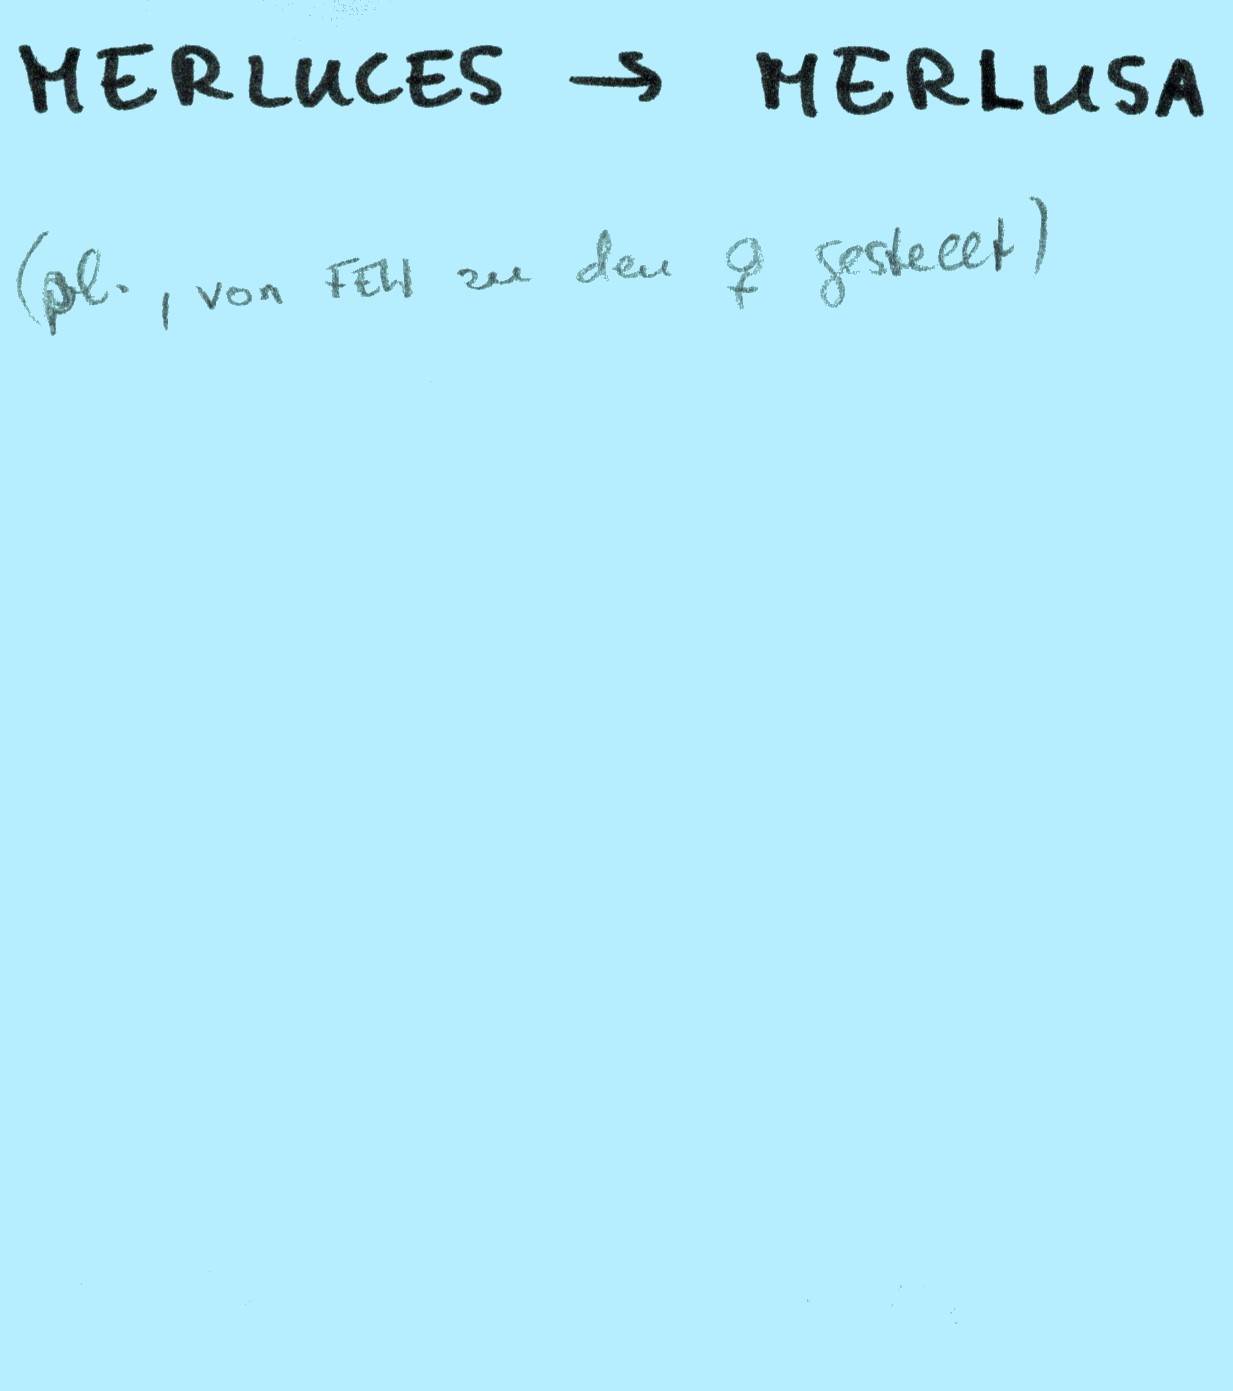 MERLUCES → MERLUSA
(pl. , von FEW zu den ♀ gestellt)